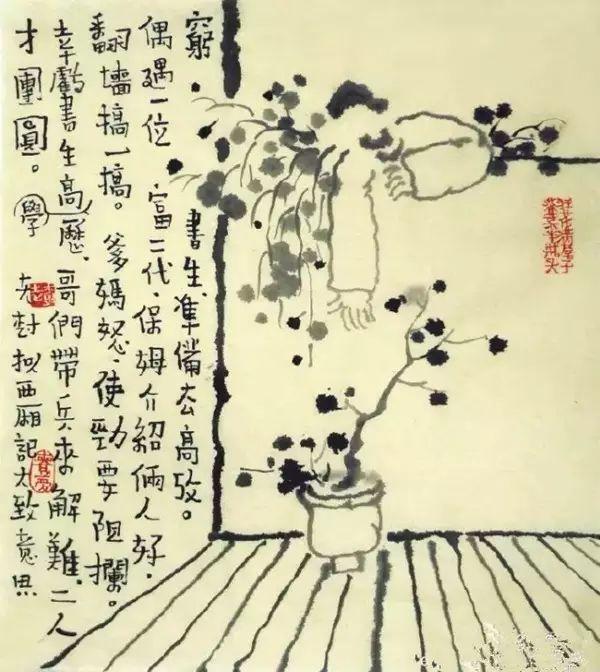 窮書生、準備去高攷。
偶遇一位富二代、保姆介紹倆人好.
翻墻搞一搞。爹媽怒、使勁要阻攔。
幸虧書生高歷、哥們帶兵來解難、二人
才團圓。
學
拟西廂記大致意思